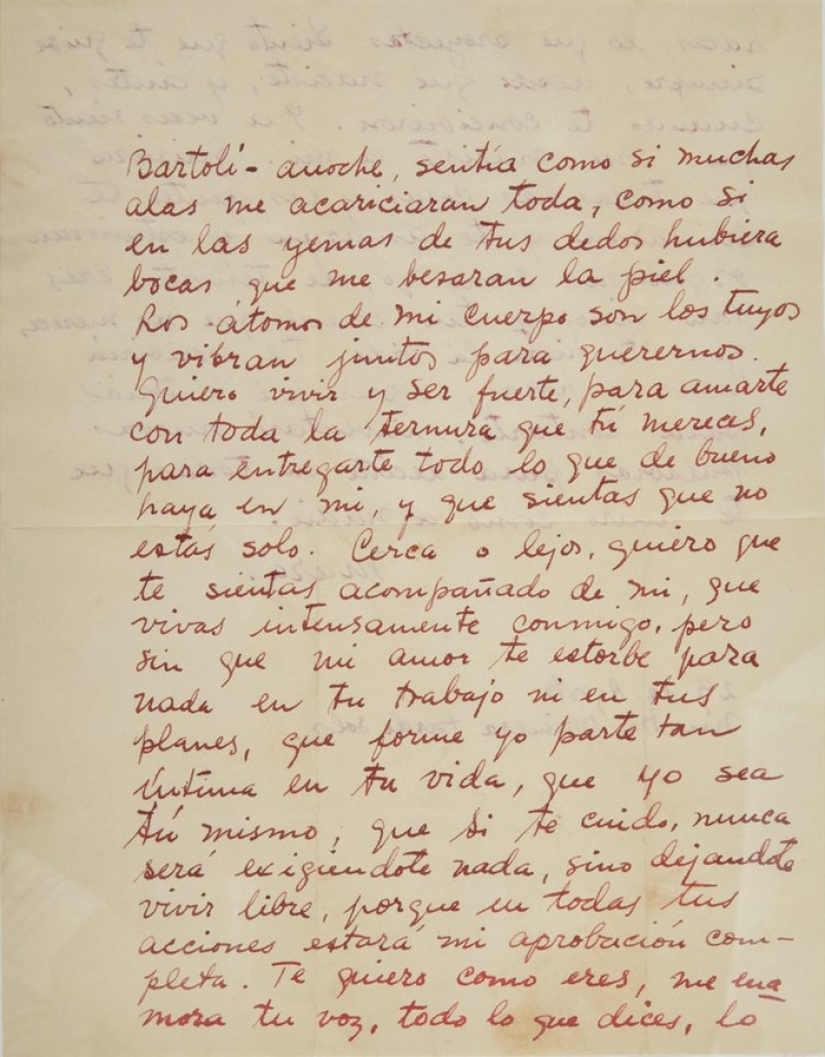 Bartolí - anoche, sentía como si muchas
alas me acariciaran toda, como si
en las yemas de tus dedos hubiera
bocas que me besaran la piel.
Los átomos de mi cuerpo son los tuyos
y vibran juntos para querernos.
Quiero vivir y ser fuerte, para amarte
con toda la ternura que tú mereces,
para entregarte todo lo que de bueno
haya en mi, y que sientas que no
estás solo. Cerca o lejos, quiero que
te sientas acompañado de mi, que
vivas intensamente conmigo, pero
sin que mi amor te estorbe para
nada en tu trabajo ni en tus
planes, que forme yo parte tan
íntima en tu vida, que yo sea
tú mismo, que si te cuido, nunca
será exigiéndote nada, sino dejandote
vivir libre, porque en todas tus
acciones estará mi aprobación com-
pleta. Te quiero como eres, me ena
mora tu voz, todo lo que dices, lo